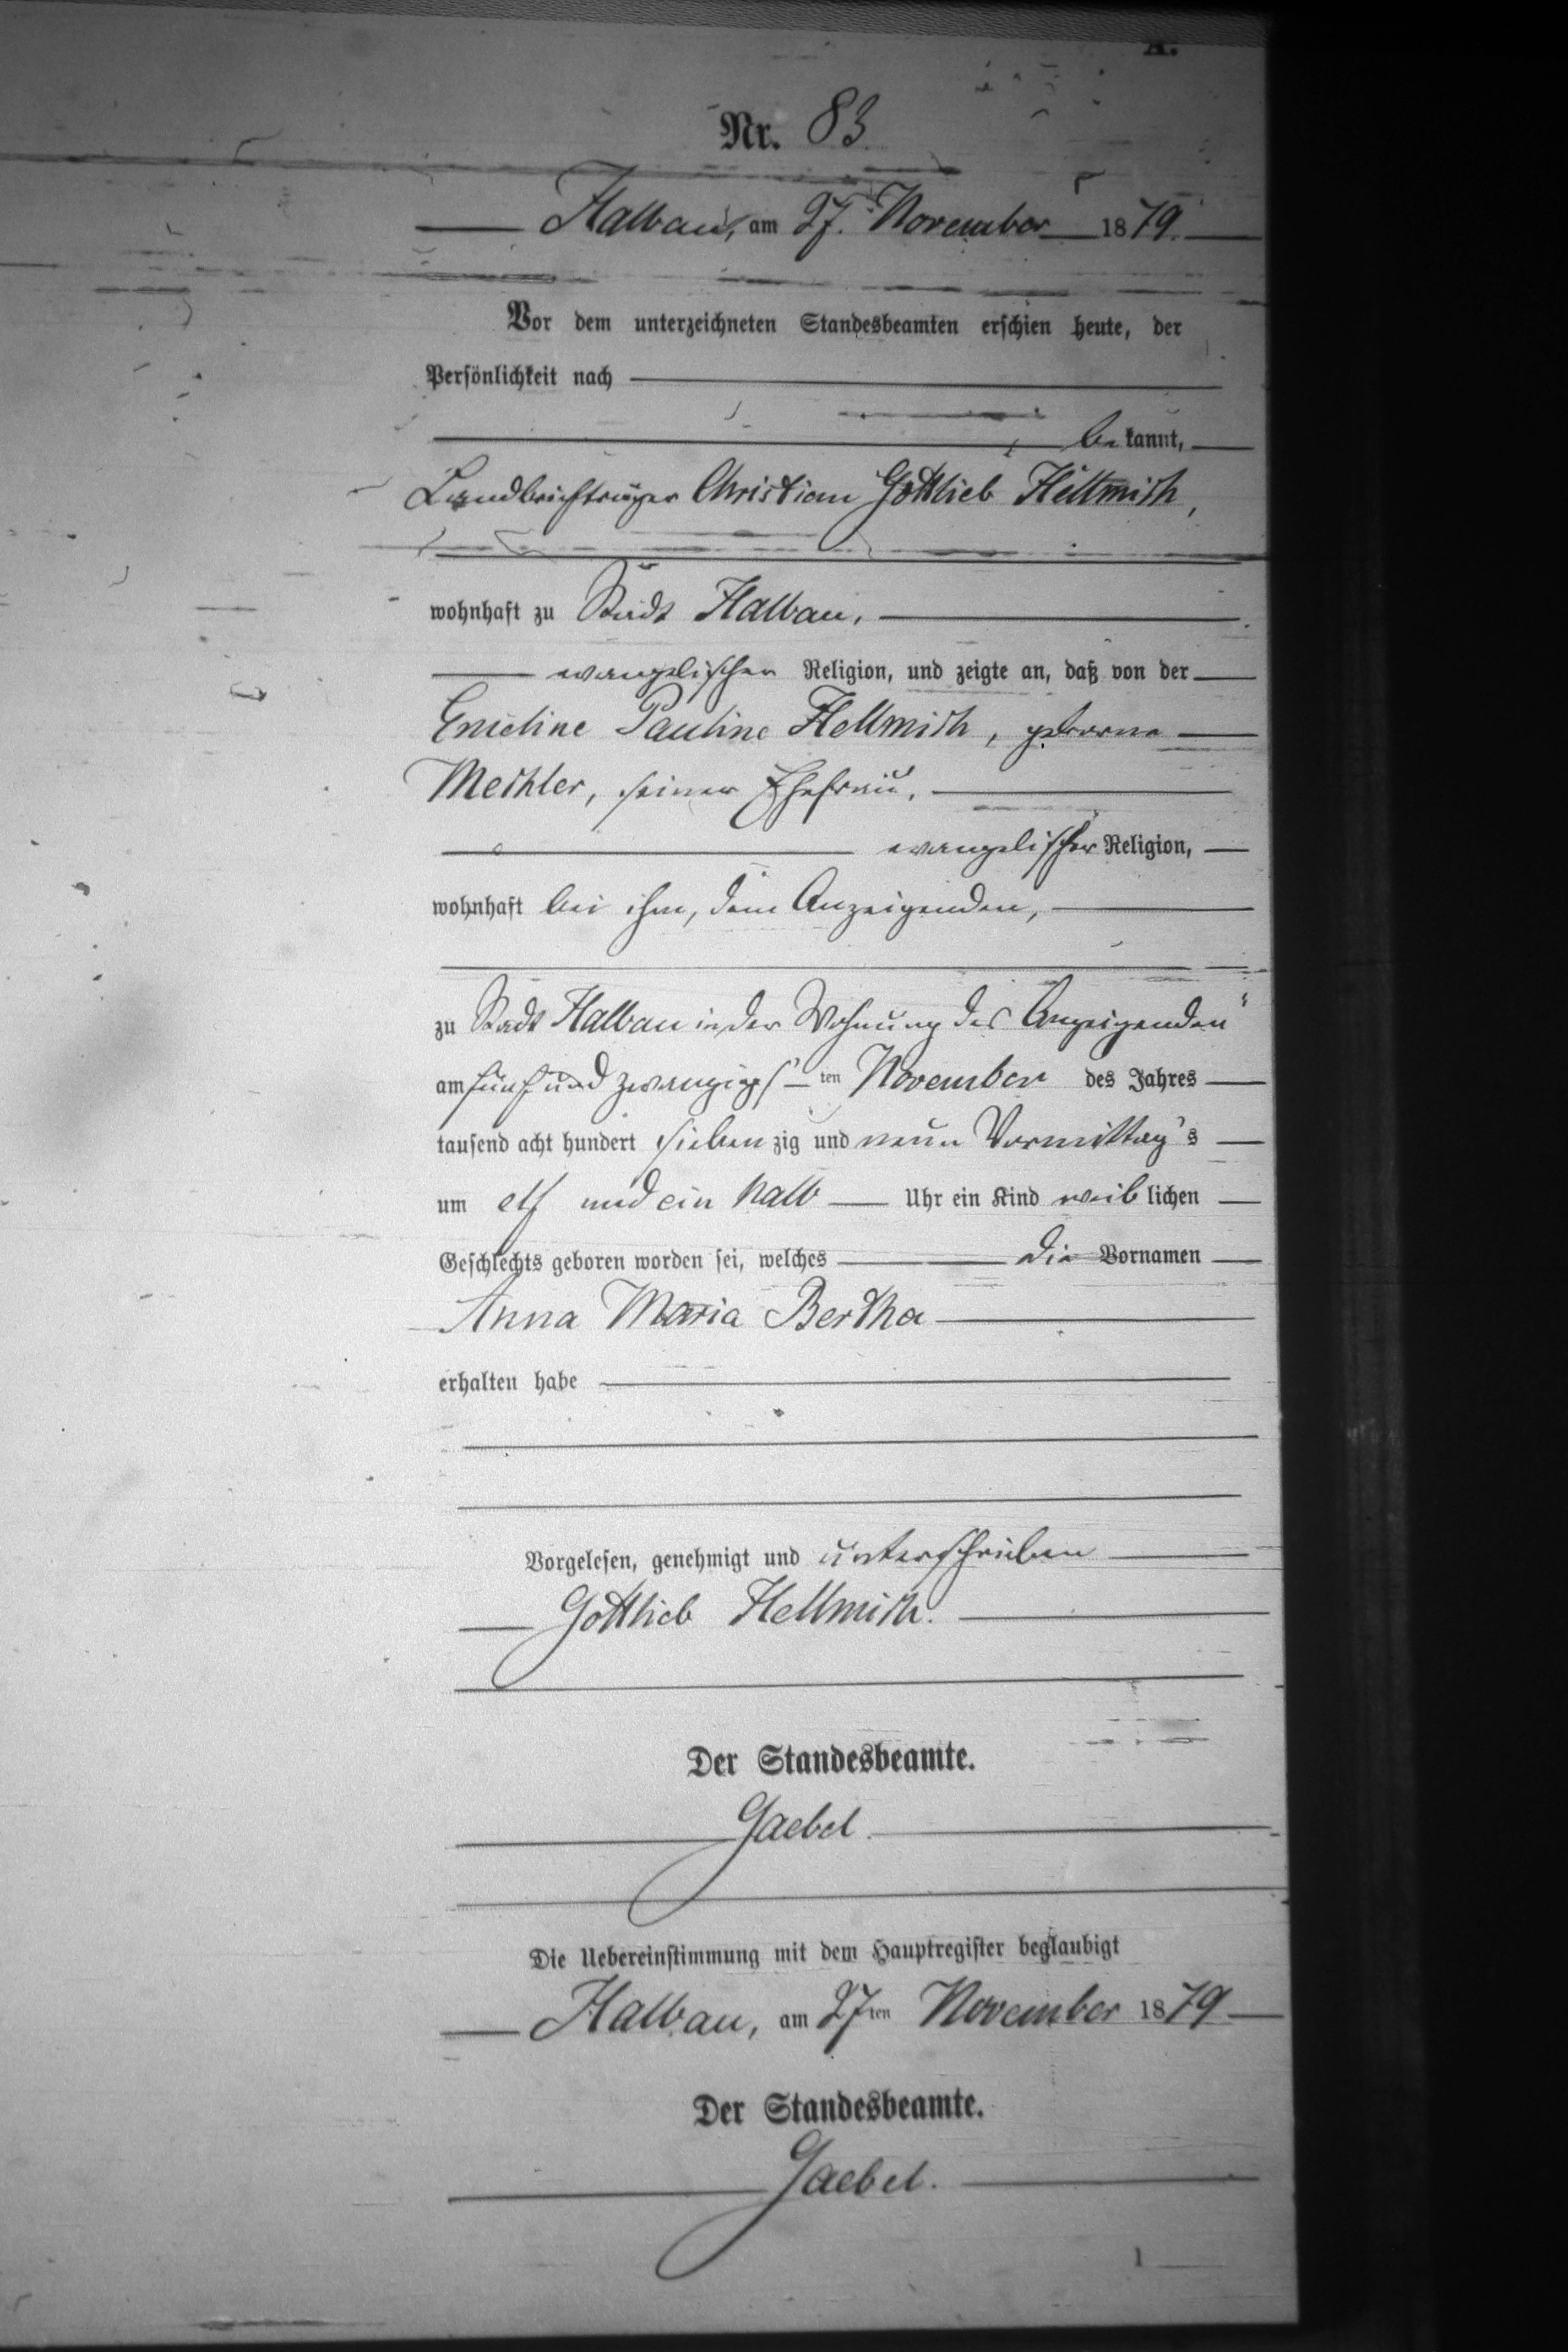 A.
Nr. 83.
Halbau, am 27. November 1879.
Vor dem unterzeichneten Standesbeamten erschien heute, der
Persönlichkeit nach
bekannt,
Landbriefträger Christian Gottlieb Hellmich,
wohnhaft zu Stadt Halbau,
evangelischer Religion, und zeigte an, daß von der
Ernestine Pauline Hellmich, geborne
Mechler, seiner Ehefrau,
evangelischer Religion,
wohnhaft bei ihm, dem Anzeigenden,
zu Stadt Halbau in der Wohnung des Anzeigenden
am fünf und zwanzigsten November des Jahres
tausend acht hundert siebenzig und neun Vormittag's
um elf und ein halb Uhr ein Kind weiblichen
Geschlechts geboren worden sei, welches die Vornamen
Anna Maria Bertha
erhalten habe
Vorgelesen, genehmigt und unterschrieben
Gottlieb Hellmich.
Der Standesbeamte.
Gaebel.
Die Uebereinstimmung mit dem Hauptregister beglaubigt
Halbau, am 27ten November 1879
Der Standesbeamte.
Gaebel.
1